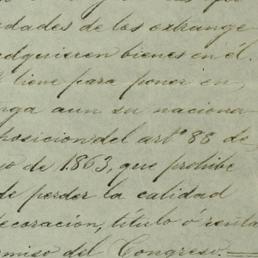 dades de los extrange
adquieren bienes en él.
tiene para poner en
nga aun su naciona
posicion del artº 88 de
o de 1863, que prohibe
de perder la calidad
decoración, título ó renta
miso del Congreso.